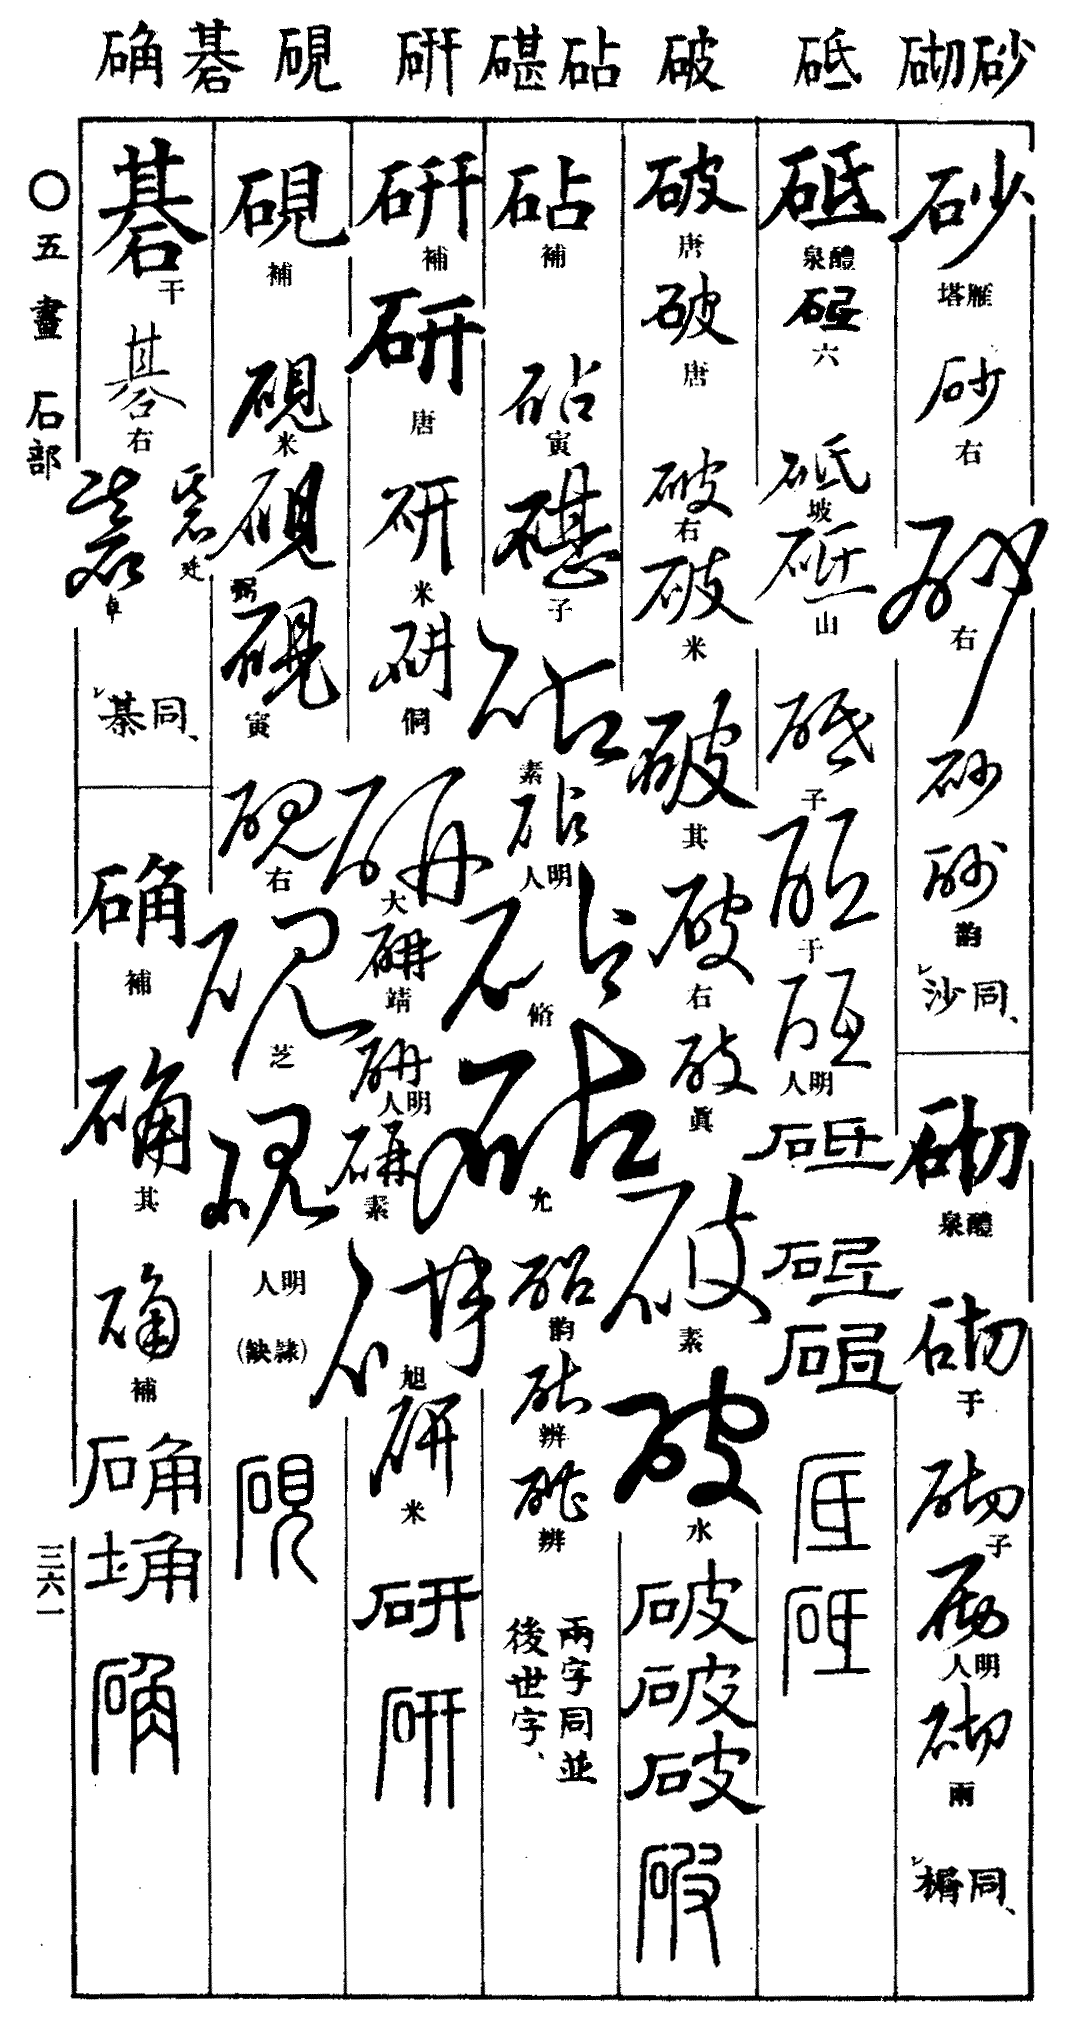 砂 砌 砥 破 砧 碪 硏 硯 碁 确
砂
雁塔
砂
右
砂
右
砂
砂
韵
沙同、
砌
醴泉
砌
于
砌
子
砌
明人
砌
雨
楈同、
砥
醴泉
砥
六
砥
坡
砥
山
砥
子
砥
干
砥
明人
砥
砥
砥
砥
砥
破
唐
破
唐
破
右
破
米
破
其
破
右
破
眞
破
素
破
水
破
破
破
破
砧
補
砧
寅
碪
子
砧
素
砧
明人
砧
脩
砧
允
砧
韵
砧
辨
砧
辨
兩字同並
後世字、
硏
補
研
唐
研
米
研
侗
研
大
研
靖
研
明人
研
素
研
旭
研
米
研
研
硯
補
硯
米
硯
弼
硯
寅
硯
右
硯
芝
硯
明人
(隷缺)
硯
碁
干
碁
右
碁
廷
碁
卓
棊同、
确
補
确
其
确
補
确
确
〇五畫 石部
三六一